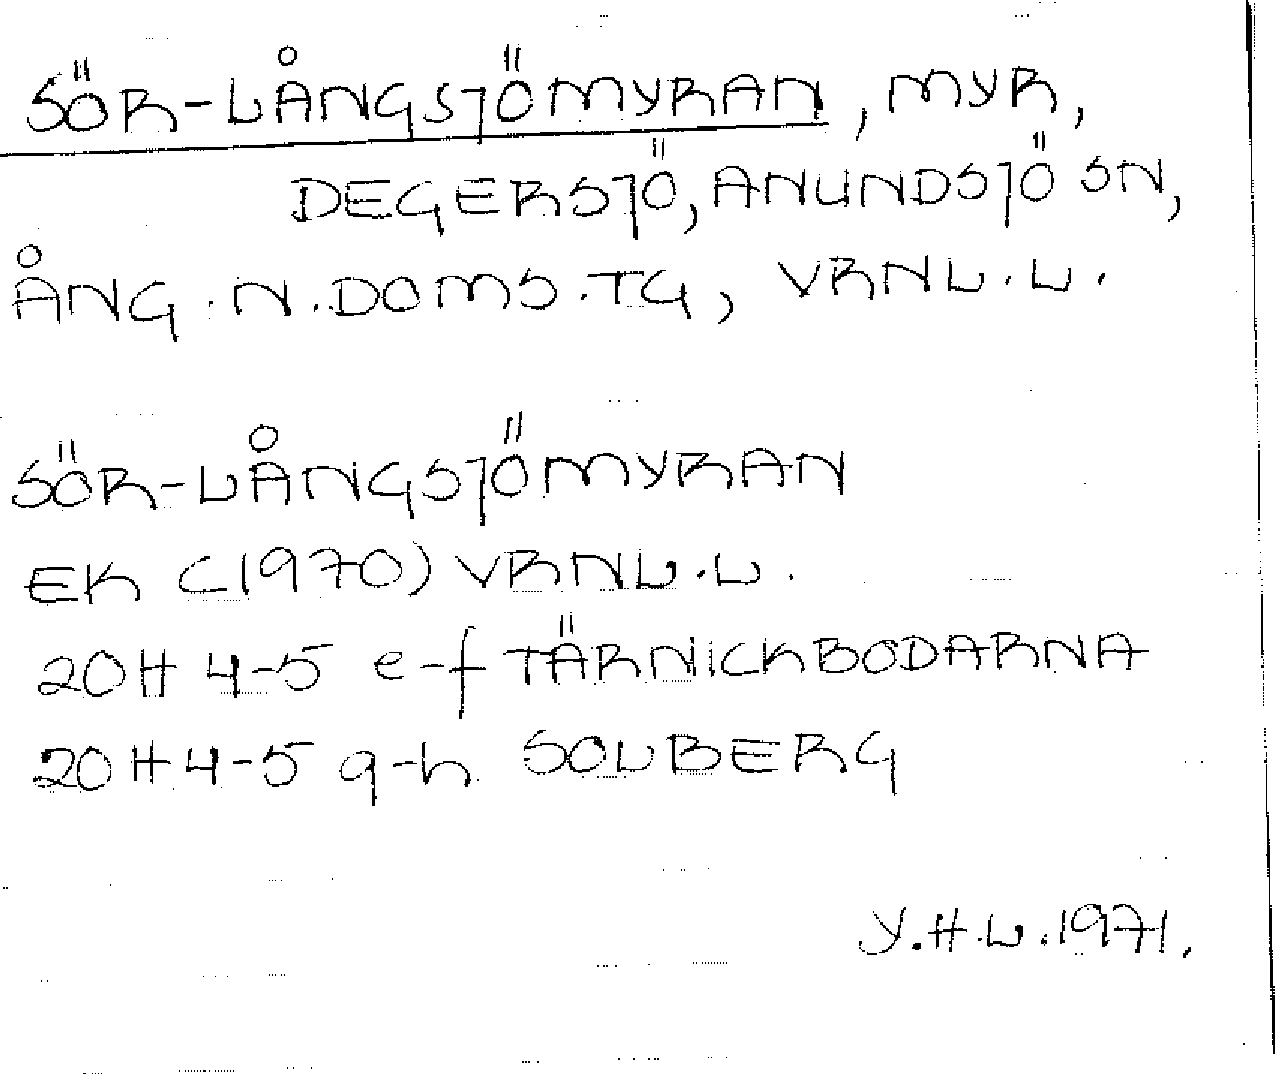 SÖR-LÅNGSJÖMYRAN, MYR,
DEGERSJÖ, ANUNDSJÖ SN,
ÅNG. N. DOMS. TG, VRNL. L.
SÖR-LÅNGSJÖMYRAN
EK (1970) VRNL. L.
20H 4-5 e-f TÄRNICKBODARNA
20H 4-5 g-h SOLBERG
Y.H.L. 1971.